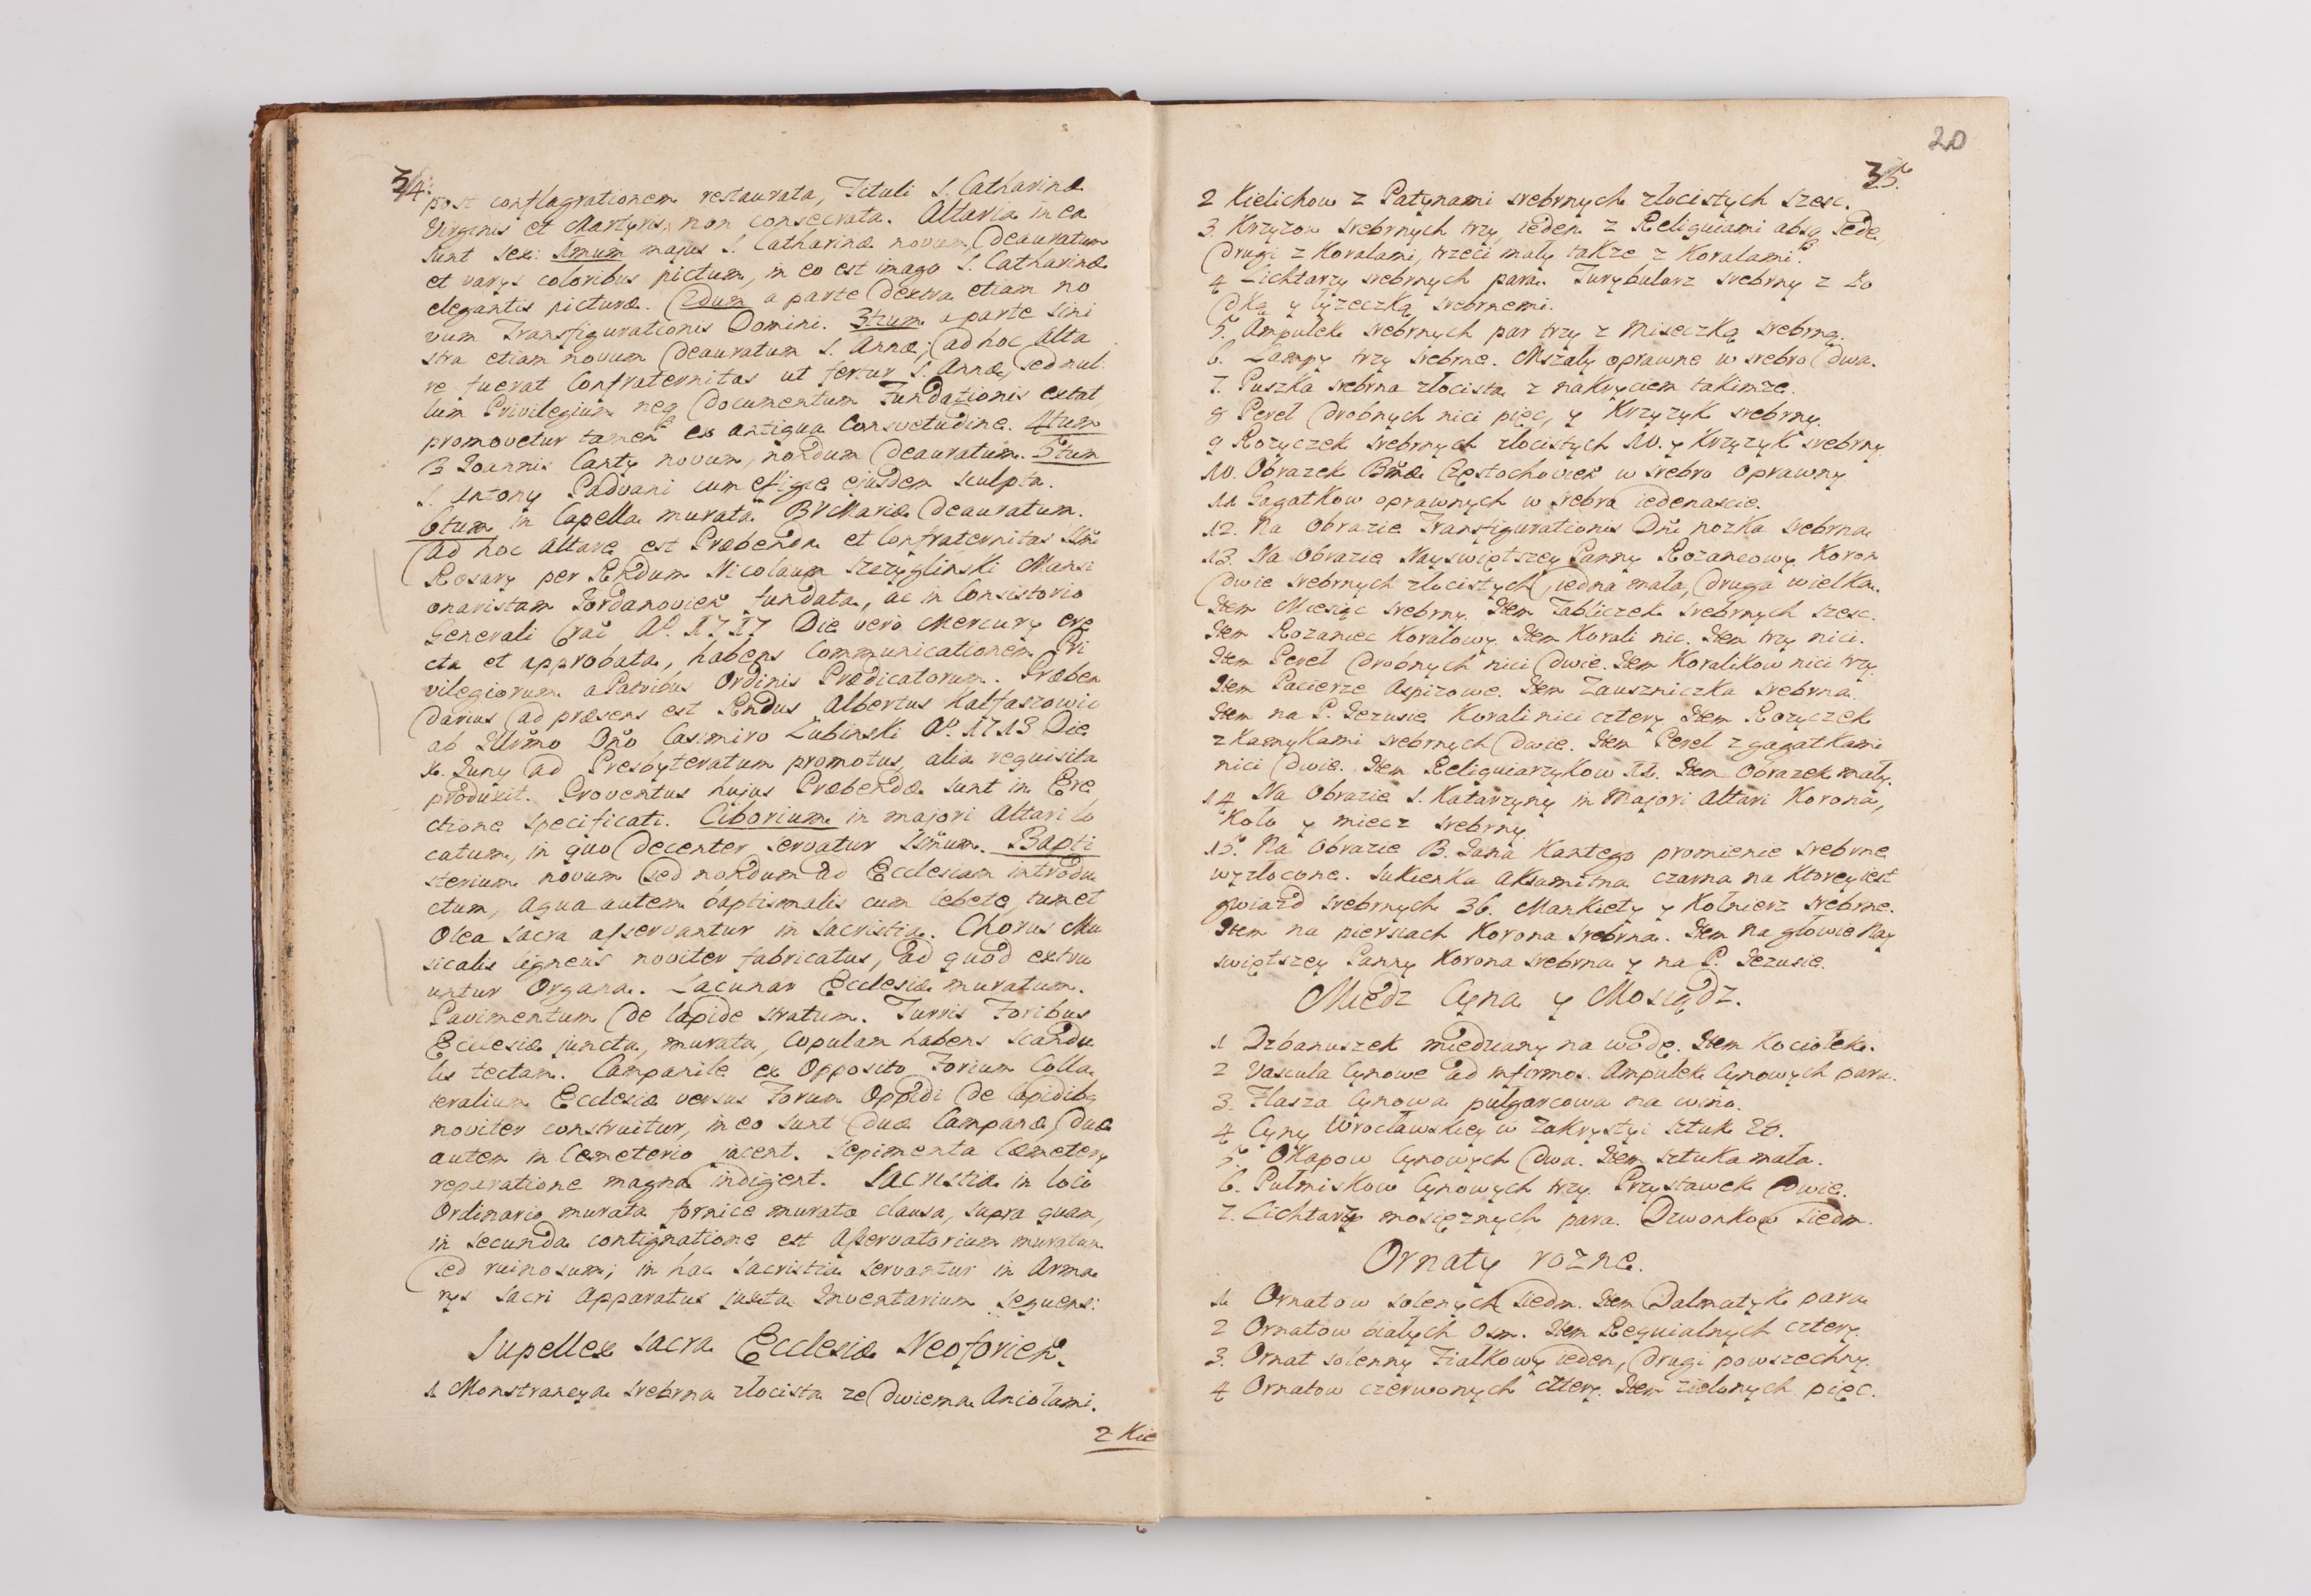 34.
post conflagrationem restaurata, Tituli S. Catharinæ
Virginis et Martyris, non consecrata. Altaria in ea
sunt sex: 1mum majus S. Catharinæ novum, deauratum
et varys coloribus pictum, in eo est imago S. Catharinæ
elegantis picturæ. 2dum a parte dextra etiam no
vum Transfigurationis Domini. 3tium a parte sini
stra etiam novum deauratum S. Annæ; ad hoc Alta
re fuerat Confraternitas ut fertur S. Annæ, sed nul
lum Privilegium neq documentum Fundationis extat,
promovetur tamen ex antiqua Consvetudine. 4tum
B Joannis Canty novum, nondum deauratum. 5tum
S. Antony Padvani cum efigie ejusdem sculpta.
6tum in Capella murata BVMariæ deauratum.
Ad hoc Altare est Præbenda et Confraternitas Smi
Rosary per Rndum Nicolaum Szczyglinski Mansi
onaristam Jordanovien fundata, ac in Consistorio
Generali Crac Aº. 1717 Die vero Mercury ere
cta et approbata, habens Communicationem Pri
vilegiorum a Patribus Ordinis Prædicatorum. Præben
darius ad præsens est Rndus Albertus Kalfaszowic
ab Illrmo Dno Casimiro Łubinski Aº. 1713 Die
Juny ad Presbyteratum promotus, alia requisita
produxit. Proventus hujus Præbendæ sunt in Ere
ctione specificati. Ciborium in majori Altari lo
catum, in quo decenter servatur Smum. Bapti
sterium novum sed nondum ad Ecclesiam introdu
ctum, aqua autem baptismalis cum lebete, tum et
Olea sacra asservantur in Sacristia. Chorus Mu
sicalis ligneus noviter fabricatus, ad quod extru
untur Organa. Lacunar Ecclesiæ muratum.
Pavimentum de lapide stratum. Turris Foribus
Ecclesiæ juncta, murata, Copulam habens scandu
lis tectam. Campanile ex Opposito Forium Colla
teralium Ecclesiæ versus Forum Oppidi de lapidibq
noviter construitur, in eo sunt duæ Campanæ, duæ
autem in Cæmeterio jacent. Sepimenta Cæmetery
reparatione magna indigent. Sacristia in loco
Ordinario murata fornice murato clausa, supra quam,
in secunda contignatione est Asservatorium muratum
sed ruinosum; in hac Sacristia servantur in Arma
rys Sacri Apparatus juxta Inventarium sequens:
Supellex sacra Ecclesiæ Neoforien.
1 Monstrancya srebrna złocista ze dwiema Aniołami.
2 Kie
20
35.
2 Kielichow z Patynami srebrnych złocistych szesc.
3. Krzyzow srebrnych trzy, ieden z Reliquiami absq sede,
drugi z Koralami, trzeci mały takze z Koralami.
4 Lichtarzy srebrnych para. Turybularz srebrny z Ło
dką y łyzeczką srebrnemi.
5. Ampułek srebrnych par trzy z Miseczką srebrną.
6. Lampy trzy srebrne. Mszały oprawne w srebro dwa.
7. Puszka srebrna złocista z nakryciem takimze.
8 Pereł drobnych nici pięc, y Krzyzyk srebrny.
9 Rozyczek srebrnych złocistych 10. y Krzyzyk srebrny
10. Obrazek Bmæ Częstochovien w srebro oprawny
11 Gagatkow oprawnych w srebro iedenascie.
12. Na Obrazie Transfigurationis Dni nozka srebrna
13. Na Obrazie Nayswiętszey Panny Rozancowy Koron
dwie srebrnych złocistych, iedna mała, druga wielka.
Item Miesiąc srebrny. Item Tabliczek srebrnych szesc.
Item Rozaniec Koralowy. Item Korali nic. Item trzy nici.
Item Pereł drobnych nici dwie. Item Koralikow nici trzy.
Item Pacierze Aspizowe. Item Zauszniczka srebrna.
Item na P. Jezusie Korali nici cztery Item Rozyczek
z kamykami srebrnych dwie. Item Pereł z gagatkami
nici dwie. Item Reliquiarzykow 12. Item Obrazek mały.
14 Na Obrazie S. Katarzyny in Majori Altari Korona,
Koło y miecz srebrny.
15. Na Obrazie B. Jana Kantego promienie srebrne
wyzłocone. Sukienka aksamitna czarna na Ktorey iest
gwiazd srebrnych 36. Mankiety y Kołnierz srebrne.
Item na piersiach Korona srebrna. Item na głowie Nay
swiętszey Panny Korona srebrna y na P. Jezusie.
Miedz Cyna y Mosiądz.
1 Dzbanuszek miedziany na wodę. Item Kociołek.
2 Vascula Cynowe ad infirmos. Ampułek Cynowych para.
3. Flasza Cynowa pułgarcowa na wino.
4 Cyny Wrocławskiey w Zakrystyi sztuk 20.
5. Okapow Cynowych dwa. Item sztuka mała.
6. Pułmiskow Cynowych trzy. Przystawek dwie.
7. Lichtarzy mosięznych para. Dzwonkow siedm.
Ornaty rozne.
1. Ornatow solenych siedm. Item Dalmatyk para
2 Ornatow białych Osm. Item Requialnych cztery.
3. Ornat solenny Fialkowy ieden, drugi powszechny.
4 Ornatow czerwonych cztery. Item zielonych pięc.